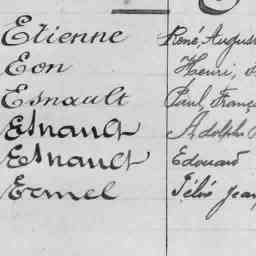 Etienne René, August
Eon Henri,
Esnault Paul, Franç
Esnault Adolphe
Esnault Edouard
Ermel Félix Jean